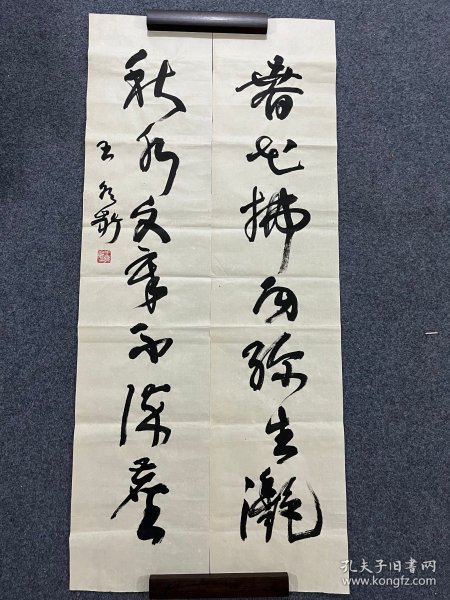 春花拂面弥生
秋水文章不染塵
王
孔夫子旧书网
www.kongfz.com